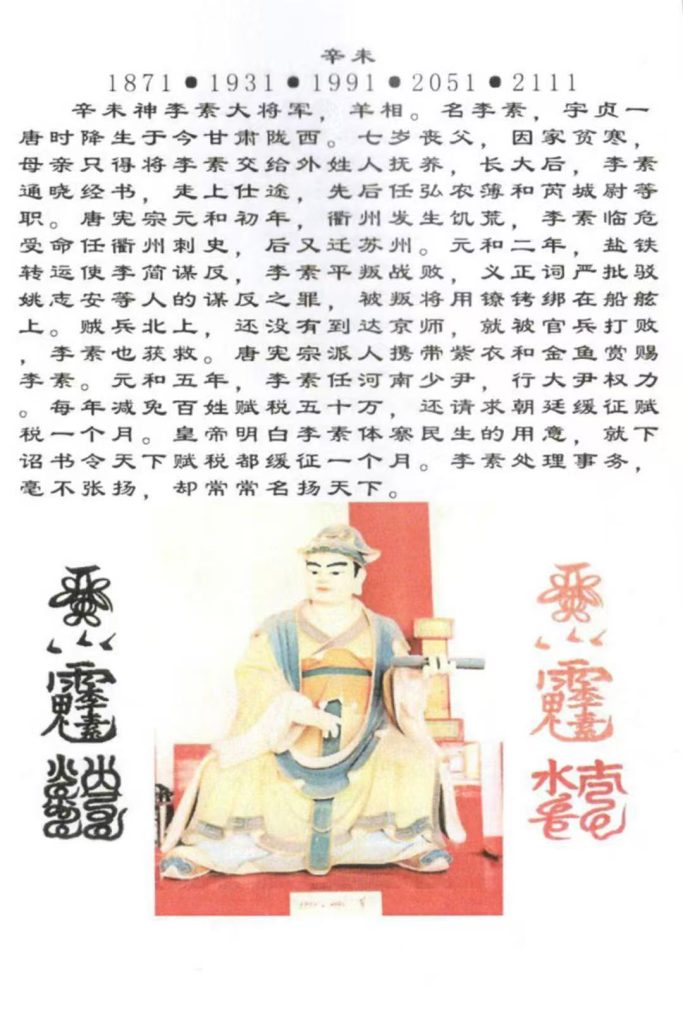 辛未
1871●1931●1991●2051●2111
辛未神李素大将军，羊相。名李素，字贞一
唐时降生于今甘肃陇西。七岁丧父，因家贫寒，
母亲只得将李素交给外姓人抚养，长大后，李素
通晓经书，走上仕途，先后任弘农薄和芮城尉等
职。唐宪宗元和初年，衢州发生饥荒，李素临危
受命任衢州刺史，后又迁苏州。元和二年，盐铁
转运使李简谋反，李素平叛战败，义正词严批驳
姚志安等人的谋反之罪，被叛将用镣铐绑在船舷
上。贼兵北上，还没有到达京师，就被官兵打败
，李素也获救。唐宪宗派人携带紫衣和金鱼赏赐
李素。元和五年，李素任河南少尹，行大尹权力
。每年减免百姓赋税五十万，还请求朝廷缓征赋
税一个月。皇帝明白李素体察民生的用意，就下
诏书令天下赋税都缓征一个月。李素处理事务，
毫不张扬，却常常名扬天下。